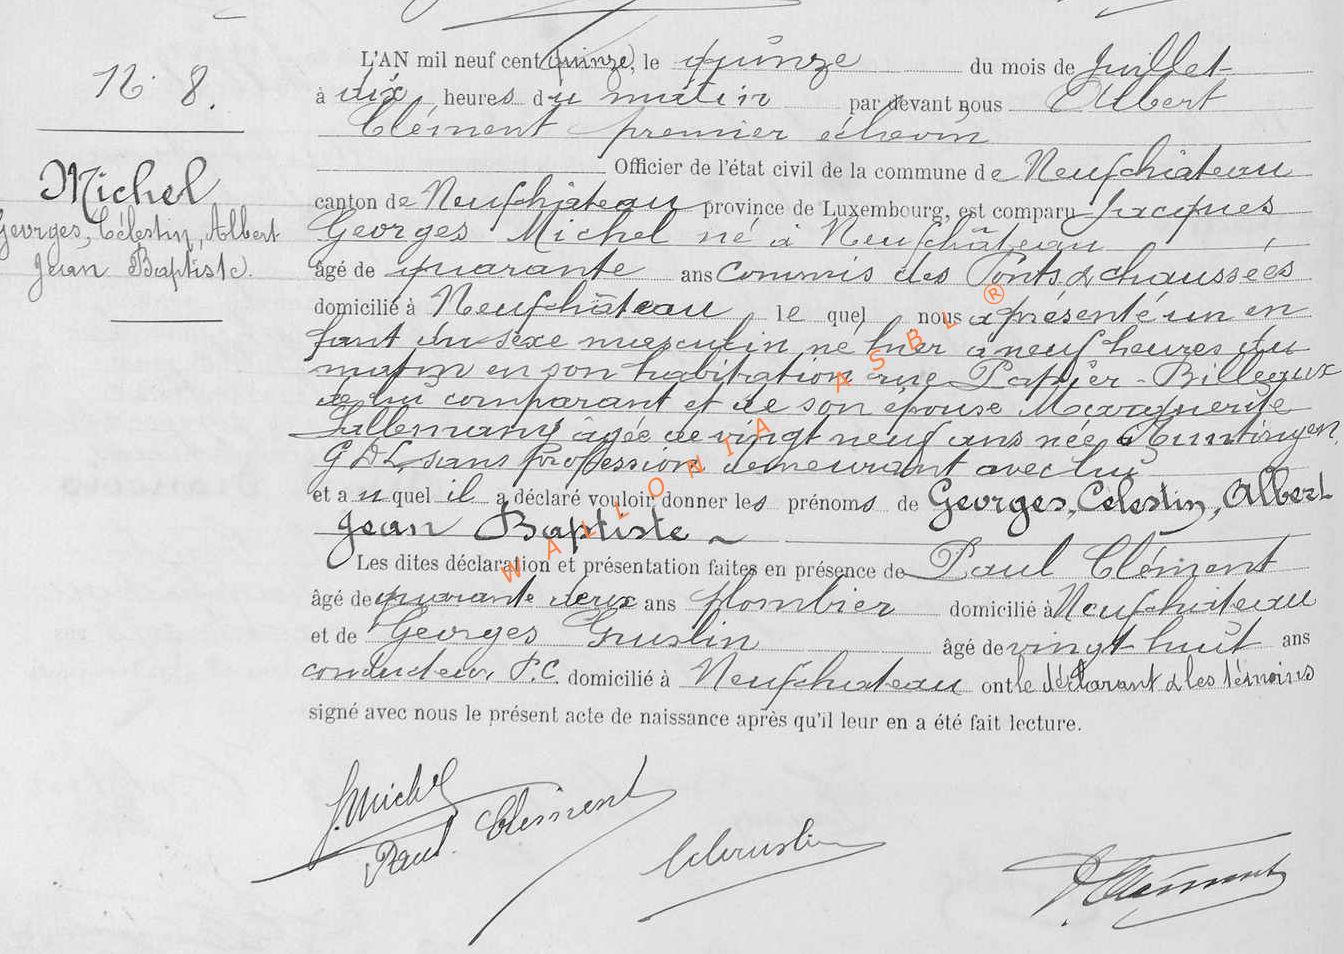 N° 8.
Michel
Georges, Célestin, Albert
Jean Baptiste.
L'AN mil neuf cent quinze, le quinze du mois de Juillet
à dix heures du matin par devant nous Albert
Clément premier échevin
Officier de l'état civil de la commune de Neufchâteau
canton de Neufchâteau province de Luxembourg, est comparu Jacques
Georges Michel né à Neufchâteau
âgé de quarante ans commis des Ponts & chaussées
domicilié à Neufchâteau lequel nous a présenté un en
fant du sexe masculin né hier à neuf heures du
matin en son habitation rue
de lui comparant et de son épouse Marguerite
âgée de vingt neuf ans née à
G D L sans profession demeurant avec lui
et auquel il a déclaré vouloir donner les prénoms de Georges, Célestin, Albert
Jean Baptiste
Les dites déclaration et présentation faites en présence de Paul Clément
âgé de quarante deux ans plombier domicilié à Neufchâteau
et de Georges Guslin âgé de vingt huit ans
conducteur P.C. domicilié à Neufchâteau ont le déclarant & les témoins
signé avec nous le présent acte de naissance après qu'il leur en a été fait lecture.
J. Michel
Paul Clément
A Clément
WALLONIA ASBL ®